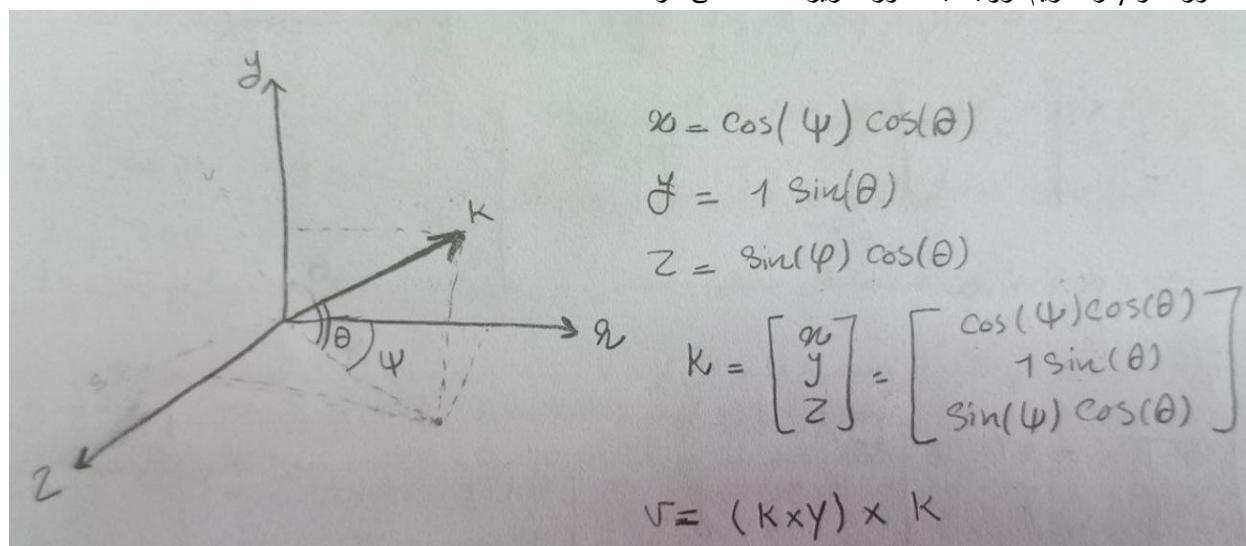 y
K
x
θ
ψ
z
x = cos(ψ) cos(θ)
y = 1 sin(θ)
z = sin(φ) cos(θ)
K = [x y z] = [cos(ψ)cos(θ) 1 sin(θ) sin(ψ) cos(θ)]
v = (K×y) × K